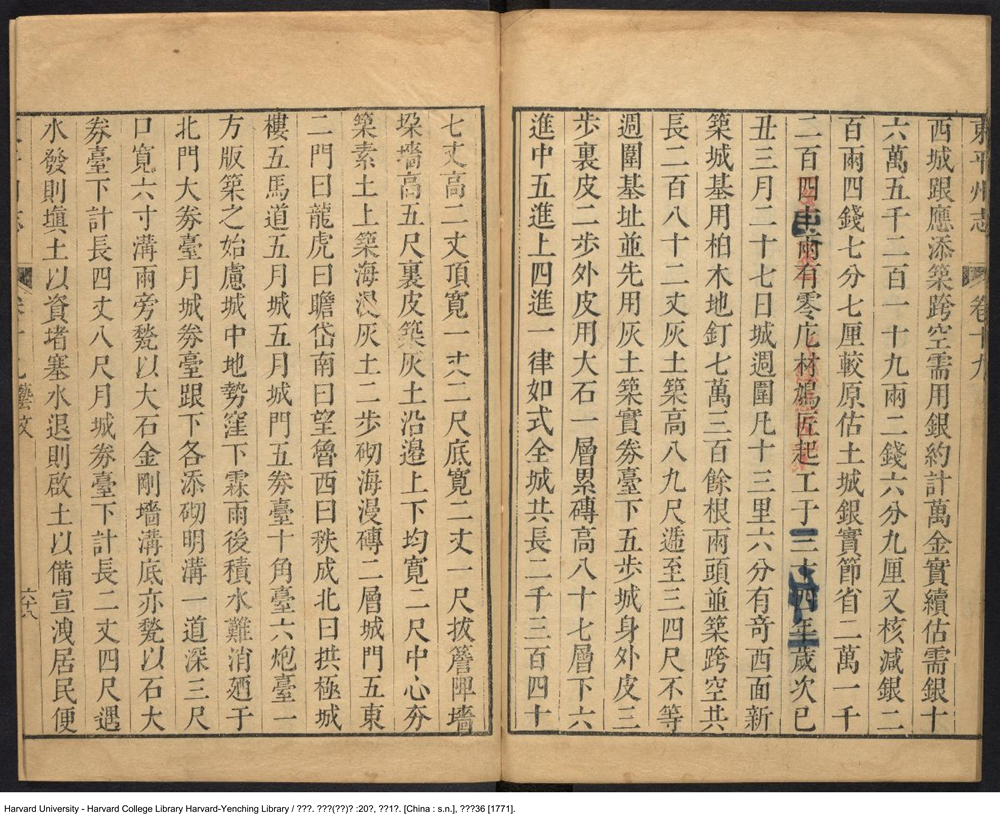 東平州志
卷十九
西城跟應添築跨空需用銀約計萬金實續估需銀十
六萬五千二百一十九兩二錢六分九厘又核減銀二
百兩四錢七分七厘較原估土城銀實節省二萬一千
二百四十兩有零庀材鳩匠起工于三十四年歲次已
丑三月二十七日城週圍凡十三里六分有奇西面新
築城基用柏木地釘七萬三百餘根兩頭並築跨空共
長二百八十二丈灰土築高八九尺遞至三四尺不等
週圍基址並先用灰土築實券臺下五步城身外皮三
步裏皮二步外皮用大石一層累磚高八十七層下六
進中五進上四進一律如式全城共長二千三百四十
七丈高二丈頂寬一丈二尺底寬二丈一尺拔簷陴墻
垛墻高五尺裏皮築灰土沿邉上下均寬二尺中心夯
築素土上築海浸灰土二步砌海漫磚二層城門五東
二門曰龍虎曰瞻岱南曰望魯西曰秩成北曰拱極城
樓五馬道五月城五月城門五券臺十角臺六炮臺一
方版築之始慮城中地勢窪下霖雨後積水難消廼于
北門大券臺月城券臺跟下各添砌明溝一道深三尺
口寬六寸溝兩旁甃以大石金剛墻溝底亦甃以石大
券臺下計長四丈八尺月城券臺下計長二丈四尺遇
水發則塡土以資堵塞水退則啟土以備宣洩居民便
藝文
六十八
Harvard University - Harvard College Library Harvard-Yenching Library / ???. ???(??)? :20?, ??1?. [China : s.n.], ???36 [1771].